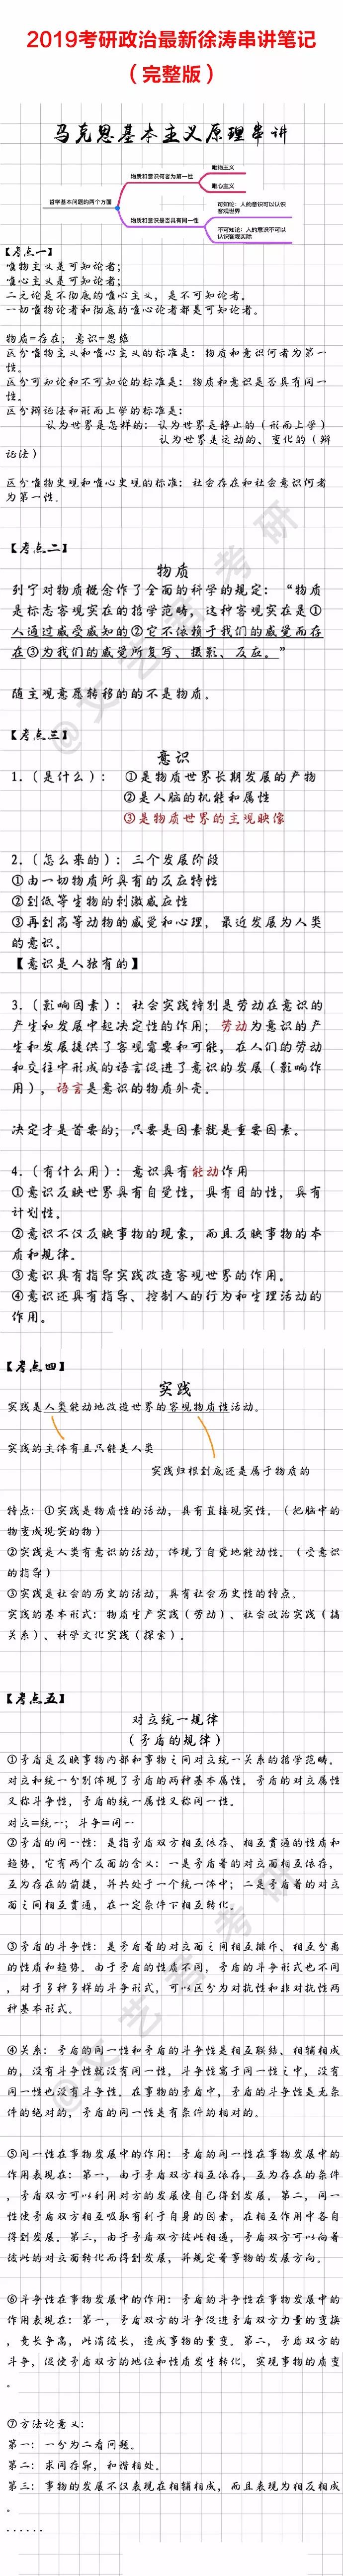 2019考研政治最新徐涛串讲笔记
（完整版）
马克思基本主义原理串讲
哲学基本问题的两个方面
物质和意识何者为第一性
唯物主义
唯心主义
物质和意识是否具有同一性
可知论：人的意识可以认识
客观世界
不可知论：人的意识不可以
认识客观实际
【考点一】
唯物主义是可知论者；
唯心主义是可知论者；
二元论是不彻底的唯心主义，是不可知论者。
一切唯物论者和彻底的唯心论者都是可知论者。
物质=存在；意识=思维
区分唯物主义和唯心主义的标准是：物质和意识何者为第一
性。
区分可知论和不可知论的标准是：物质和意识是否具有同一
性。
区分辩证法和形而上学的标准是：
认为世界是怎样的：认为世界是静止的（形而上学）
认为世界是运动的、变化的（辩
证法）
区分唯物史观和唯心史观的标准：社会存在和社会意识何者
为第一性。
【考点二】
物质
列宁对物质概念作了全面的科学的规定：“物质
是标志客观实在的哲学范畴，这种客观实在是①
人通过感受感知的②它不依赖于我们的感觉而存
在③为我们的感觉所复写、摄影、反应。”
随主观意愿转移的的不是物质。
【考点三】
意识
1.（是什么）：①是物质世界长期发展的产物
②是人脑的机能和属性
③是物质世界的主观映像
2.（怎么来的）：三个发展阶段
①由一切物质所具有的反应特性
②到低等生物的刺激感应性
③再到高等动物的感觉和心理，最近发展为人类
的意识。
【意识是人独有的】
3.（影响因素）：社会实践特别是劳动在意识的
产生和发展中起决定性的作用；劳动为意识的产
生和发展提供了客观需要和可能，在人们的劳动
和交往中形成的语言促进了意识的发展（影响作
用），语言是意识的物质外壳。
决定才是首要的；只要是因素就是重要因素。
4.（有什么用）：意识具有能动作用
①意识反映世界具有自觉性，具有目的性，具有
计划性。
②意识不仅反映事物的现象，而且反映事物的本
质和规律。
③意识具有指导实践改造客观世界的作用。
④意识还具有指导、控制人的行为和生理活动的
作用。
【考点四】
实践
实践是人类能动地改造世界的客观物质性活动。
实践的主体有且只能是人类
实践归根到底还是属于物质的
特点：①实践是物质性的活动，具有直接现实性。（把脑中的
物变成现实的物）
②实践是人类有意识的活动，体现了自觉地能动性。（受意识
的指导）
③实践是社会的历史的活动，具有社会历史性的特点。
实践的基本形式：物质生产实践（劳动）、社会政治实践（搞
关系）、科学文化实践（探索）。
【考点五】
对立统一规律
（矛盾的规律）
①矛盾是反映事物内部和事物之间对立统一关系的哲学范畴。
对立和统一分别体现了矛盾的两种基本属性。矛盾的对立属性
又称斗争性，矛盾的统一属性又称同一性。
对立=统一；斗争=同一
②矛盾的同一性：是指矛盾双方相互依存、相互贯通的性质和
趋势。它有两个反面的含义：一是矛盾着的对立面相互依存，
互为存在的前提，并共处于一个统一体中；二是矛盾着的对立
面之间相互贯通，在一定条件下相互转化。
③矛盾的斗争性：是矛盾着的对立面之间相互排斥、相互分离
的性质和趋势。由于矛盾的性质不同，矛盾的斗争形式也不同
，对于多种多样的斗争形式，可以区分为对抗性和非对抗性两
种基本形式。
④关系：矛盾的同一性和矛盾的斗争性是相互联结、相辅相成
的，没有斗争性就没有同一性，斗争性寓于同一性之中，没有
同一性也没有斗争性。在事物的矛盾中，矛盾的斗争性是无条
件的绝对的，矛盾的同一性是有条件的相对的。
⑤同一性在事物发展中的作用：矛盾的同一性在事物发展中的
作用表现在：第一，由于矛盾双方相互依存，互为存在的条件
，矛盾双方可以利用对方的发展使自己得到发展。第二，同一
性使矛盾双方相互吸取有利于自身的因素，在相互作用中各自
得到发展。第三，由于矛盾双方彼此相通，矛盾双方可以向着
彼此的对立面转化而得到发展，并规定着事物的发展方向。
⑥斗争性在事物发展中的作用：矛盾的斗争性在事物发展中的
作用表现在：第一，矛盾双方的斗争促进矛盾双方力量的变换
，竞长争高，此消彼长，造成事物的量变。第二，矛盾双方的
斗争，促使矛盾双方的地位和性质发生转化，实现事物的质变
。
⑦方法论意义：
第一：一分为二看问题。
第二：求同存异，和谐相处。
第三：事物的发展不仅表现在相辅相成，而且表现为相反相成
。
······
@文艺考研